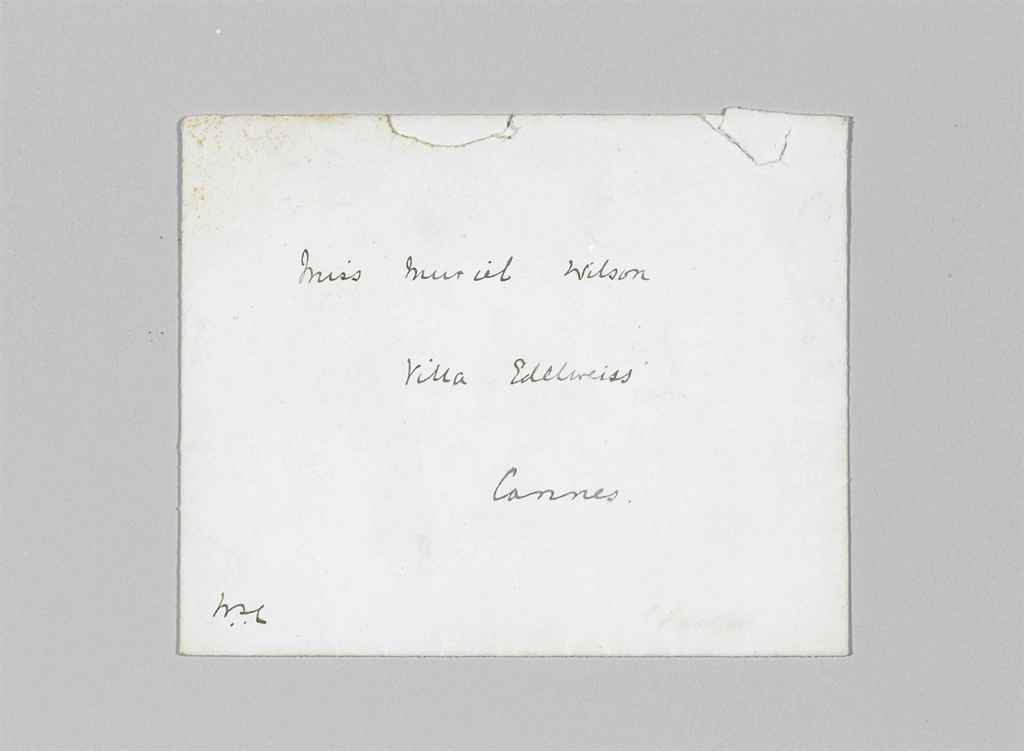 Miss Muriel Wilson
Villa Edelweiss
Cannes.
W.S.C